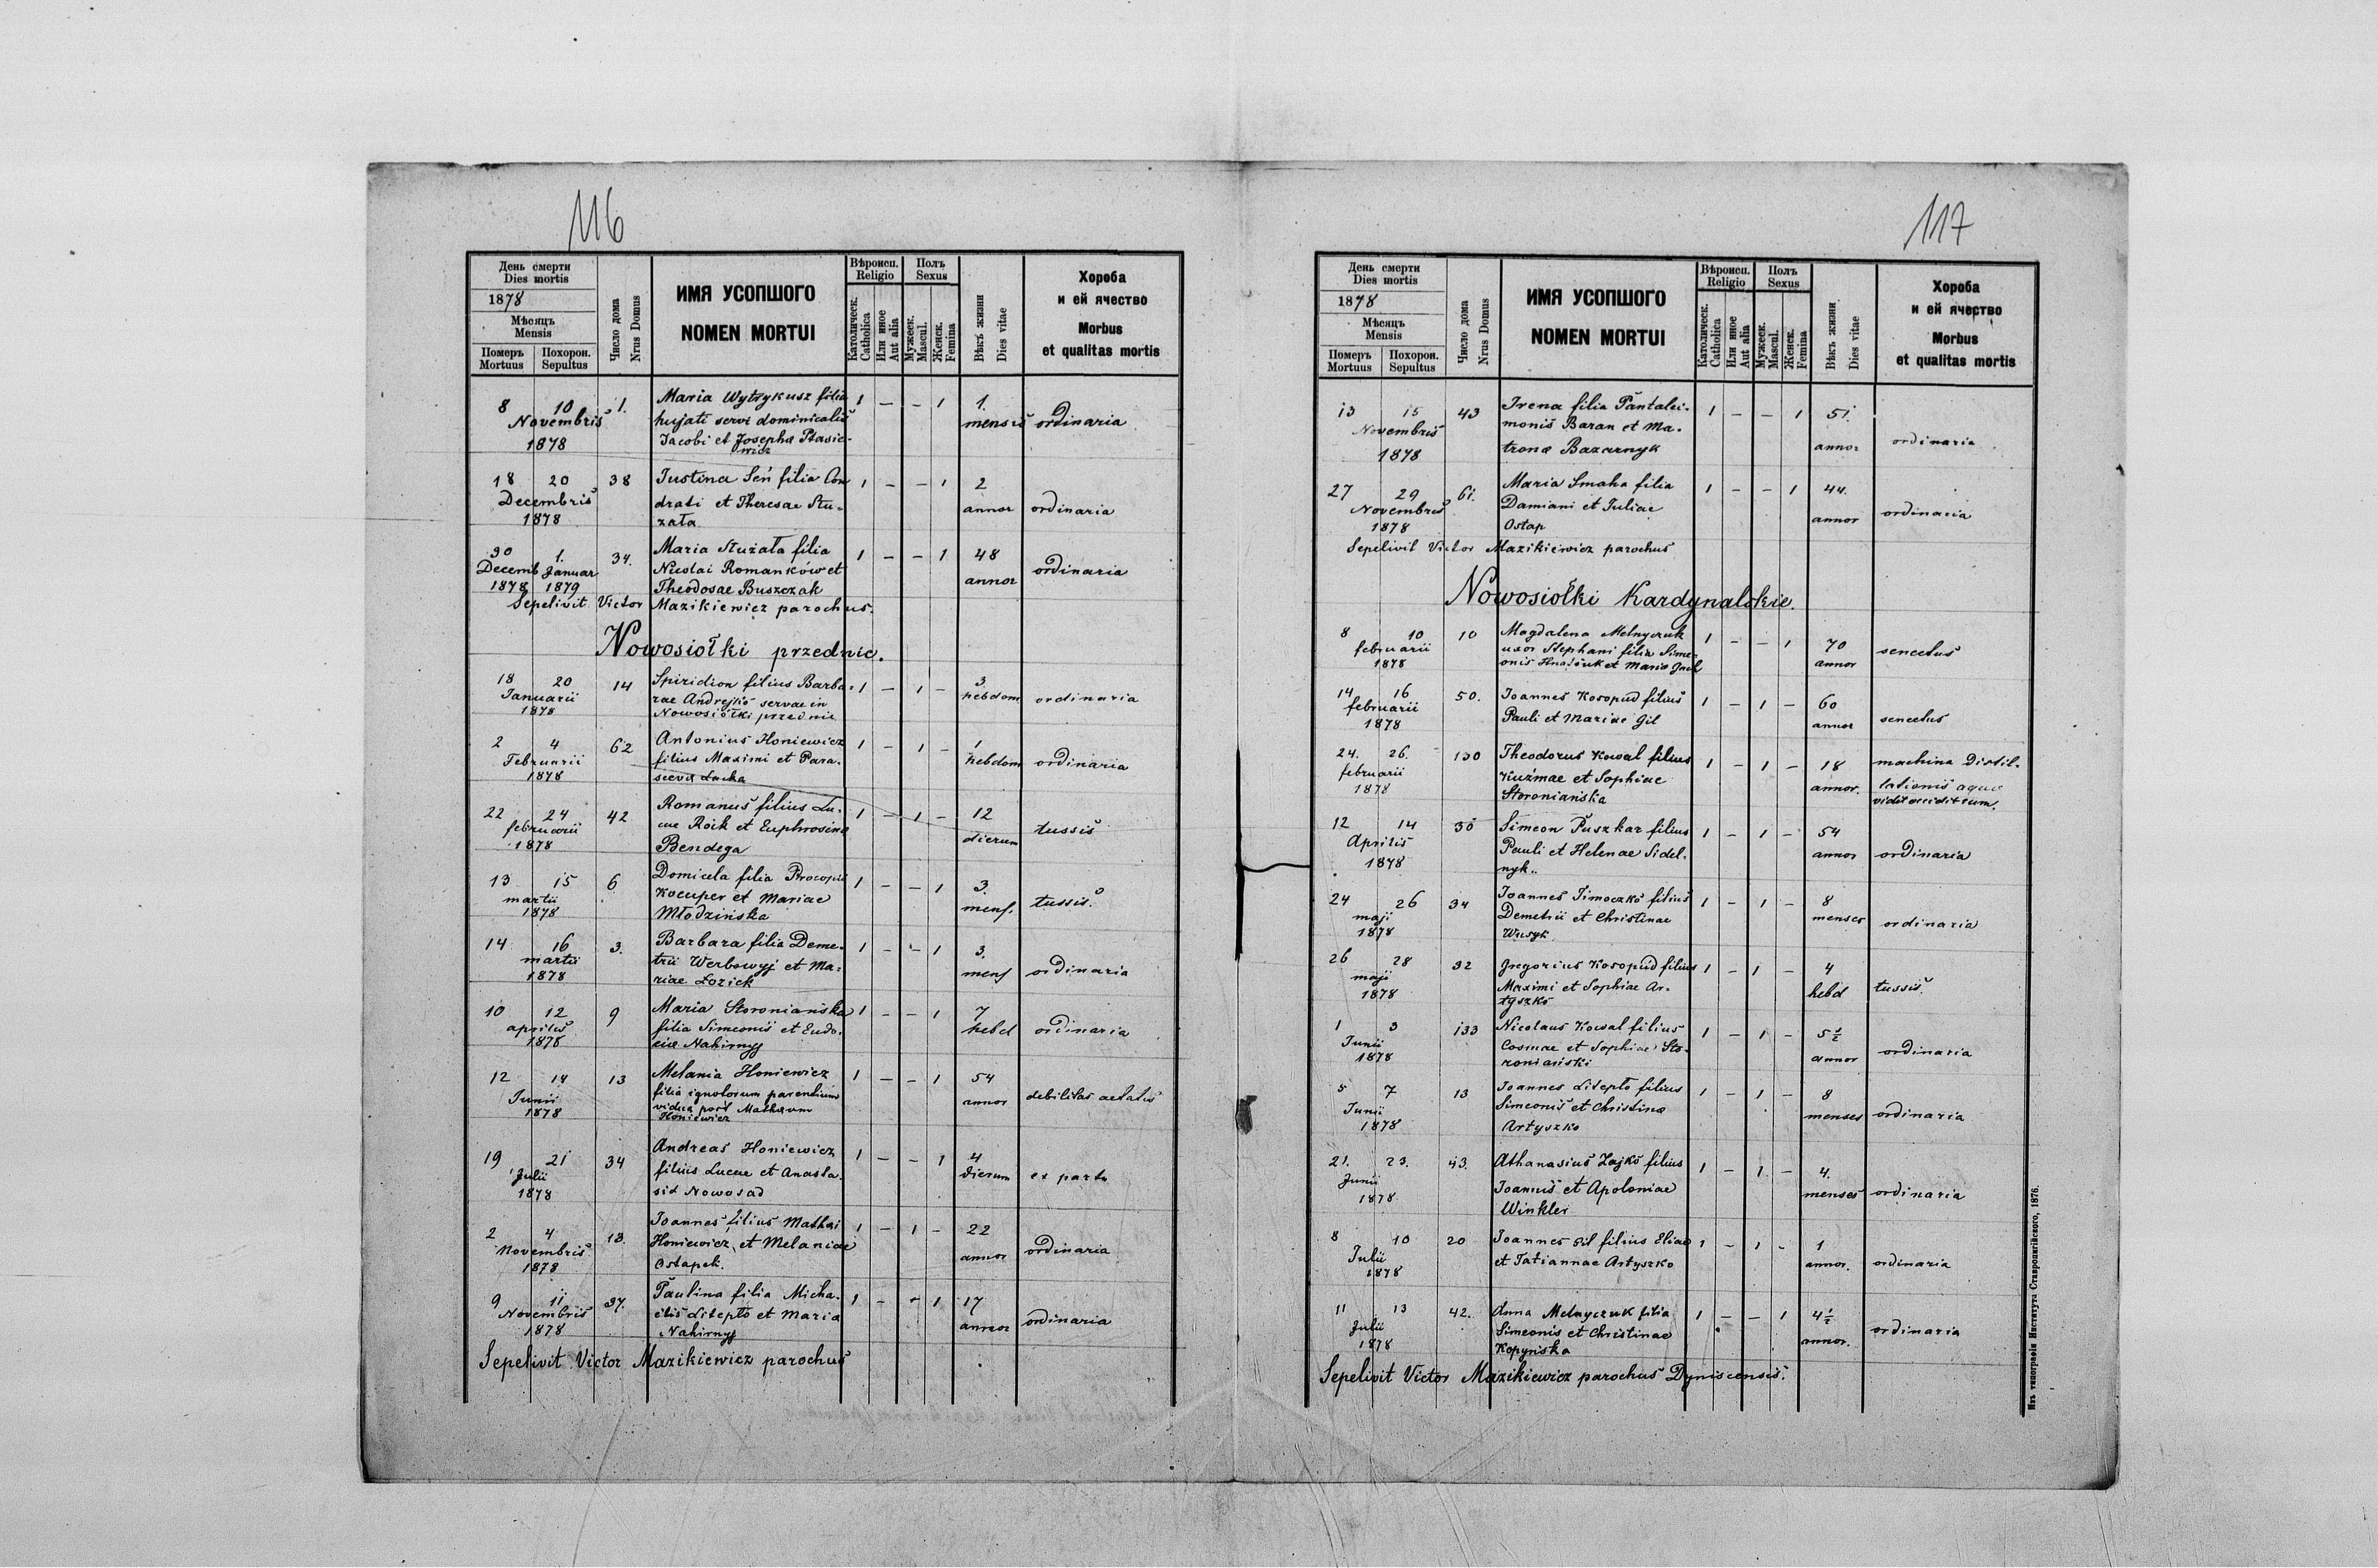 116
День смерти
Dies mortis
1878
Мѣсяцъ
Mensis
Померъ
Mortuus
Похорон.
Sepultus
Число дома
Nrus Domus
ИМЯ УСОПШОГО
NOMEN MORTUI
Вѣроисп.
Religio
Католическ.
Catholica
Или иное
Aut alia
Полъ
Sexus
Мужеск.
Mascul.
Женск.
Femina
Вѣкъ жизни
Dies vitae
Хороба
и ей ячество
Morbus
et qualitas mortis
8 10 1. Maria Wytrykusz filia 1 – – 1 1.
Novembris hujati servi dominicalis mensis ordinaria
1878 Jacobi et Josepha Ptasie-
wicz
18 20 38 Justina Seń filia Con 1 – – 1 2
Decembris drati et Theresae Stu- annor ordinaria
1878 zata
30 1. 34. Maria Stużała filia 1 – – 1 48
Decemb Januar Nicolai Romanków et annor ordinaria
1878 1879 Theodosae Buszczak
Sepelivit Victor Mazikiewicz parochus.
Nowosiołki przednie.
18 20 14 Spiridion filius Barba- 1 – 1 – 3.
Januarii rae Andrejko servae in hebdom ordinaria
1878 Nowosiółki przednie
2 4 62 Antonius Honiewicz 1 – 1 – 1
Februarii filius Maximi et Para- hebdom ordinaria
1878 scevia Lucka
22 24 42 Romanus filius Lu- 1 – 1 – 12
februarii cae Roik et Euphrosina dierum tussis
1878 Bendega
13 15 6 Domicela filia Procopii 1 – – 1 3.
martii Kocuper et Mariae mens. tussis.
1878 Młodzińska
14 16 3. Barbara filia Deme- 1 – – 1 3.
martii trii Werbowyj et Ma- mens ordinaria
1878 riae Łozick
10 12 9 Maria Storoniańska 1 – – 1 7
aprilis filia Simeonis et Eudo- hebd ordinaria
1878 ciae Nahirnyj
12 14 13 Melania Honiewicz 1 – – 1 54
Junii filia ignotorum parentium annor debilitas aetatis
1878 vidua post Mathaeum
Honiewicz
19 21 34 Andreas Honiewicz 1 – – 1 4
Julii filius Lucae et Anasta- dierum ex partu
1878 sia Nowosad
2 4 13. Joannes filius Mathei 1 – 1 – 22
Novembris Honiewicz et Melaniae annor ordinaria
1878 Ostapek.
9 11 37. Paulina filia Micha- 1 – – 1 17
Novembris elis Litepło et Maria annor ordinaria
1878 Nahirnyj
Sepelivit Victor Mazikiewicz parochus
117
День смерти
Dies mortis
1878
Мѣсяцъ
Mensis
Померъ
Mortuus
Похорон.
Sepultus
Число дома
Nrus Domus
ИМЯ УСОПШОГО
NOMEN MORTUI
Вѣроисп.
Religio
Католическ.
Catholica
Или иное
Aut alia
Полъ
Sexus
Мужеск.
Mascul.
Женск.
Femina
Вѣкъ жизни
Dies vitae
Хороба
и ей ячество
Morbus
et qualitas mortis
13 15 43 Irena filia Pantalei- 1 – – 1 51
Novembris monis Baran et Ma- annor ordinaria
1878 trona Bazarnyk
27 29 61. Maria Smaha filia 1 – – 1 44.
Novembris Damiani et Juliae annor ordinaria
1878 Ostap
Sepelivit Victor Mazikiewicz parochus
Nowosiołki Kardynalskie.
8 10 10 Magdalena Melnyczuk 1 – – 1 70
februarii uxor Stephani filia Sime- annor senectus
1878 onis Hnatiuk et Maria
14 16 50. Joannes Kosopud filius 1 – 1 – 60
februarii Pauli et Mariae Gil annor senectus
1878
24. 26. 130 Theodorus Kowal filius 1 – 1 – 18 machina Distil-
februarii Kuźmae et Sophiae annor. lationis aquae
1878 Storoniańska
12 14 30 Simeon Puszkar filius 1 – 1 – 54
Aprilis Pauli et Helenae Sidel- annor ordinaria
1878 nyk..
24 26 34 Joannes Timoczko filius 1 – 1 – 8
maji Demetrii et Christinae menses ordinaria
1878 Wusyk
26 28 32 Gregorius Kosopud filius 1 – 1 – 4
maji Maximi et Sophiae Ar- hebd tussis.
1878 tyszko
1 3 133 Nicolaus Kowal filius 1 – 1 – 5½
Junii Cosmae et Sophiae Sto- annor ordinaria
1878 roniański
5 7 13 Joannes Litepło filius 1 – 1 – 8
Junii Simeonis et Christina menses ordinaria
1878 Artyszko
21. 23. 43. Athanasius Zajko filius 1 – 1 – 4.
Junii Joannis et Apoloniae menses ordinaria
1878 Winkler
8 10 20 Joannes Gil filius Eliae 1 – 1 – 1
Julii et Tatiannae Artyszko annor. ordinaria
1878
11 13 42. Anna Melnyczuk filia 1 – – 1 4½
Julii Simeonis et Christinae annor. ordinaria
1878 Kopyńska
Sepelivit Victor Mazikiewicz parochus Dyniscensis.
Изъ типографіи Института Ставропигійского, 1876.